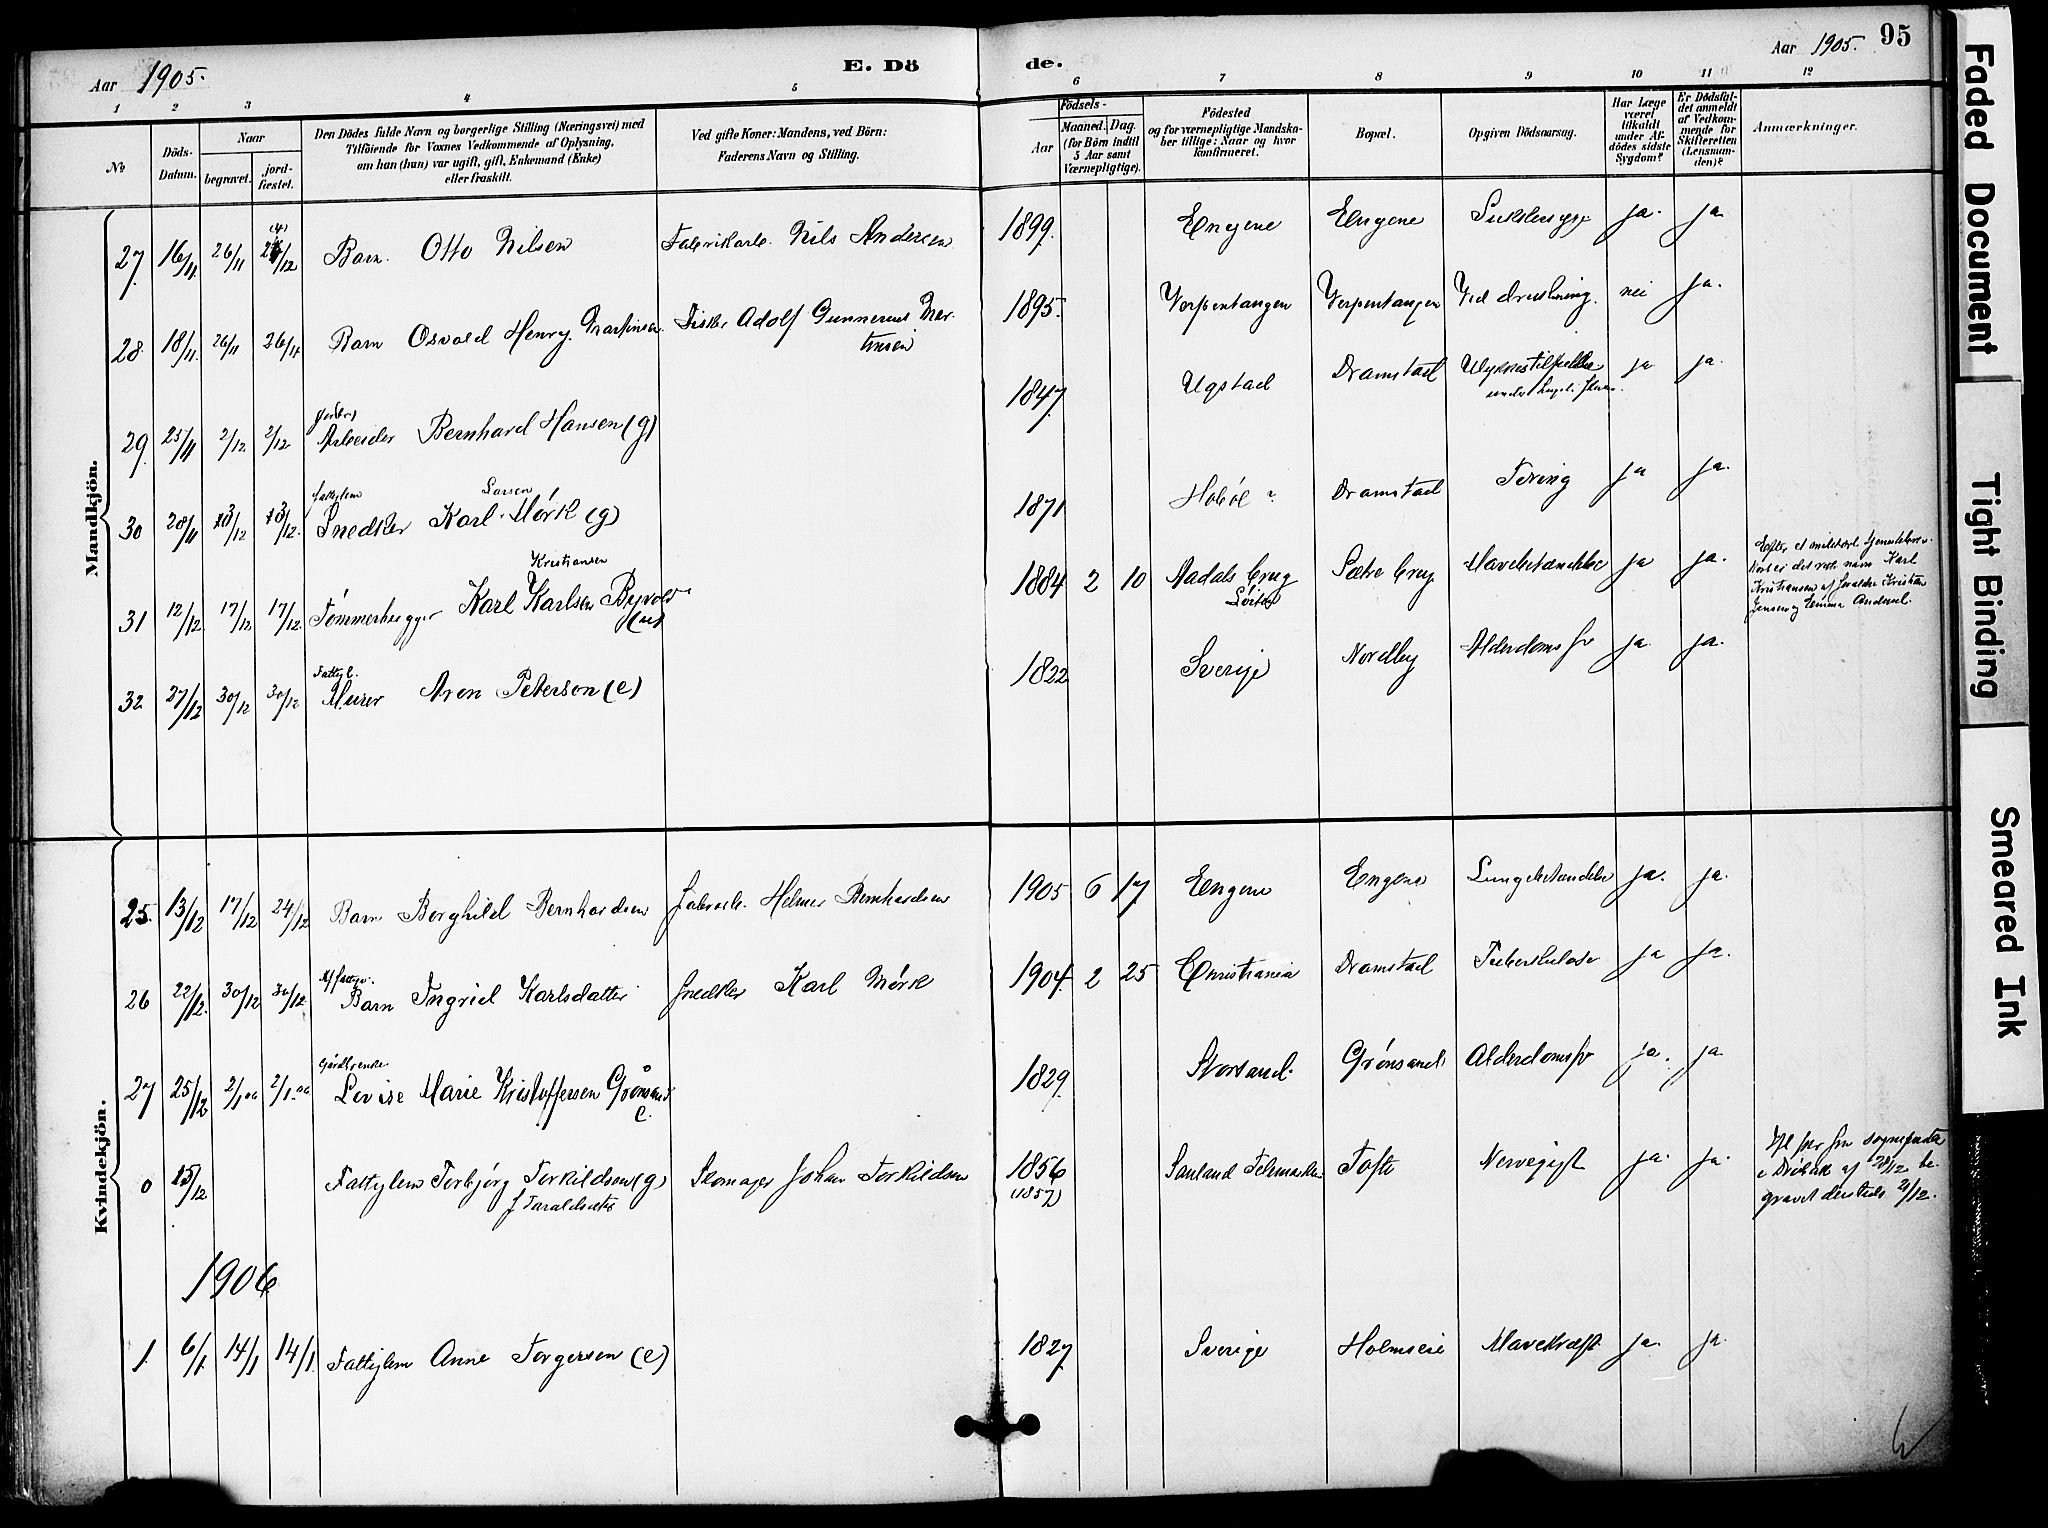 Aar 1905.
E. Dö
de.
Aar 1905.
95
1 2 3 4 5 6 7 8 9 10 11 12
No
Döds-
Datum.
Naar
begravet.
jord-
fæstet.
Den Dödes fulde Navn og borgerlige Stilling (Næringsvei) med
Tilföiende for Voxnes Vedkommende af Oplysning,
om han (hun) var ugift, gift, Enkemand (Enke)
eller fraskilt.
Ved gifte Koner: Mandens, ved Börn:
Faderens Navn og Stilling.
Födsels-
Aar
Maaned. Dag.
(for Börn indtil
5 Aar samt
Værnepligtige).
Födested
og for værnepligtige Mandska-
ber tillige: Naar og hvor
konfirmeret.
Bopæl.
Opgiven Dödsaarsag.
Har Læge
været
tilkaldt
under Af-
dödes sidste
Sygdom?
Er Dödsfal-
det anmeldt
af Vedkom-
mende for
Skifteretten
(Lensman-
den)?
Anmærkninger.
Mandkjön.
27. 16/11 26/11 /12 Barn Otto Nilsen Fabrikarb. Nils Andersen 1899. Engene Engene ja. ja
28 18/11. 26/11 26/11 Barn Osvald Henry Martinsen Fisker Adolf Gunnerius Mar-
tinsen 1895. Verpentangen Verpentangen Ved drukning. nei ja.
29. 25/11 2/12 2/12.
Arbeider Bernhard Hansen (g) 1847 Ugstad Dramstad Ulykkestilfælde ja ja.
30 28/11 3/12 3/12. fattiglem Larsen
Snedker Karl Mørk (g) 1871 Hobøl ? Dramstad Tæring ja ja.
31 12/12. 17/12 17/12. Kristiansen
Tømmerhugger Karl Karlsen Byvold
(u) 1884 2 10 Aadals Brug
Løiten Sætre Brug Mavebetændelse ja ja.
Efter et militært
det rette navn Karl
Kristiansen af Kristian
Jensen og Emma
32 27/12 30/12 30/12 Fattigl.
Murer Aron Peterson (e) 1822 Sverige Nordby Alderdomssv ja ja.
Kvindekjön.
25. 13/12 17/12 24/12 Barn Borghild Bernhardsen Fabrarb. Helmer Bernhardsen 1905 6 17 Engene Engene Lungebetændelse ja. ja.
26 22/12. 30/12 30/12.
Barn Ingrid Karlsdatter Snedker Karl Mørk 1904. 2 25 Christiania Dramstad Tuberkulose ja ja.
27 25/12 2/1 06 2/1. 06 Gårdbrenke
Lovise Marie Kristoffersen Grønsand
e. 1829. Storsand. Grønsand Alderdomssv ja. ja
0 15/12 Fattiglem Torbjørg Torkildsen (g)
f. Taraldsdatter Skomager Johan Torkildsen 1856
(1857) Sauland Telemarken Tofte Nervegigt ja. ja.
Ifl. fra sogneprest
i Drøbak af 20/12 be-
gravet dersteds 21/12.
1906
1. 6/1 14/1 14/1. Fattiglem Anne Torgersen (e) 1827 Sverige Holmseie Mavekræft ja. ja.
Faded Document
Tight Binding
Smeared Ink